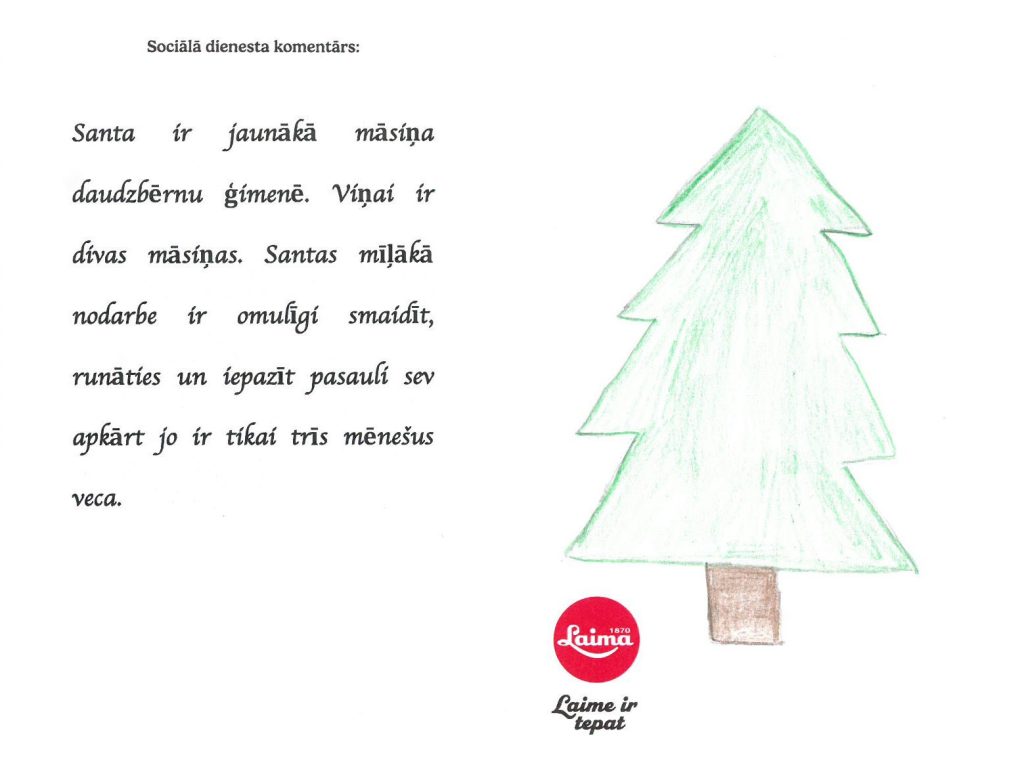 Sociālā dienesta komentārs:
Santa ir jaunākā māsiņa
daudzbērnu ģimenē. Viņai ir
divas māsiņas. Santas mīļākā
nodarbe ir omulīgi smaidīt,
runāties un iepazīt pasauli sev
apkārt jo ir tikai trīs mēnešus
veca.
1870
Laima
Laime ir
tepat